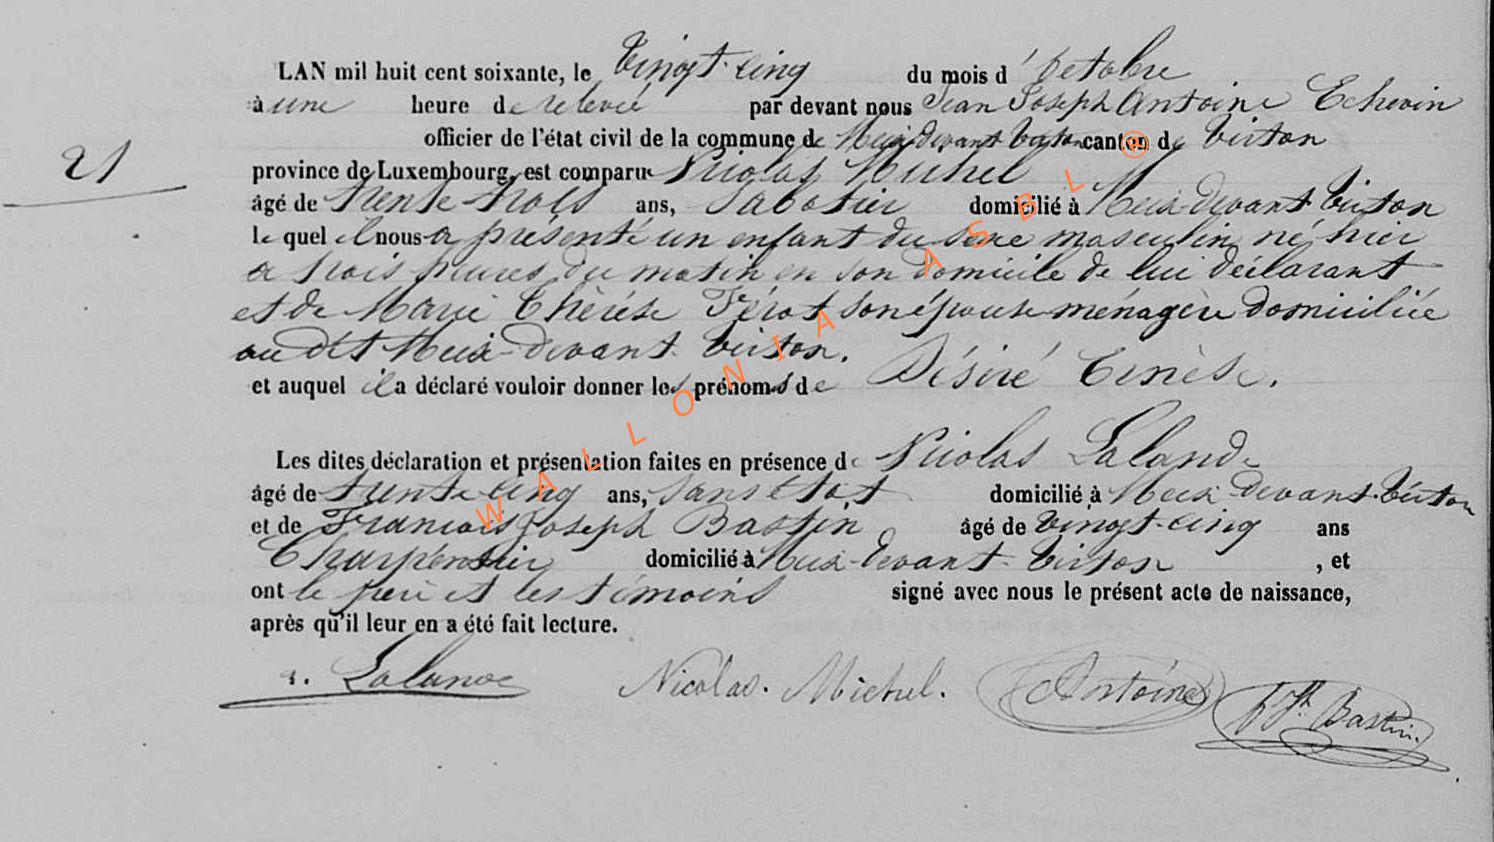 LAN mil huit cent soixante, le vingt-cinq du mois d'Octobre
à une heure de relevée par devant nous Jean Joseph Antoine Echevin
officier de l'état civil de la commune de Meix devant Virton canton de Virton
21
province de Luxembourg, est comparu Nicolas Michel
âgé de trente trois ans, Sabotier domicilié à Meix-devant-Virton
le quel il nous a présenté un enfant du sexe masculin né hier
à trois heures du matin en son domicile de lui déclarant
et de Marie Thérèse Férot son épouse ménagère domiciliée
au dit Meix-devant-Virton.
et auquel il a déclaré vouloir donner les prénoms de Désiré .
Les dites déclaration et présentation faites en présence de Nicolas Lalande
âgé de trente cinq ans, sans état domicilié à Meix-devant-Virton
et de Francois Joseph Bastin âgé de vingt-cinq ans
Charpentier domicilié à Meix-devant-Virton , et
ont le père et les témoins signé avec nous le présent acte de naissance,
après qu'il leur en a été fait lecture.
Lalande Nicolas. Michel. Antoine Bastin.
WALLONIA ASBL ®